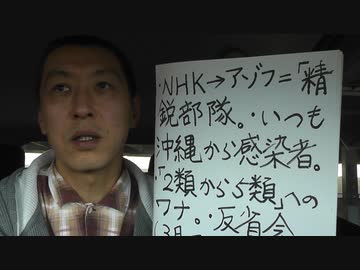 ・NHK→アゾフ=「精
鋭部隊。・いつも
沖縄から感染者。
・「2類から5類」への
ワナ。・反省会